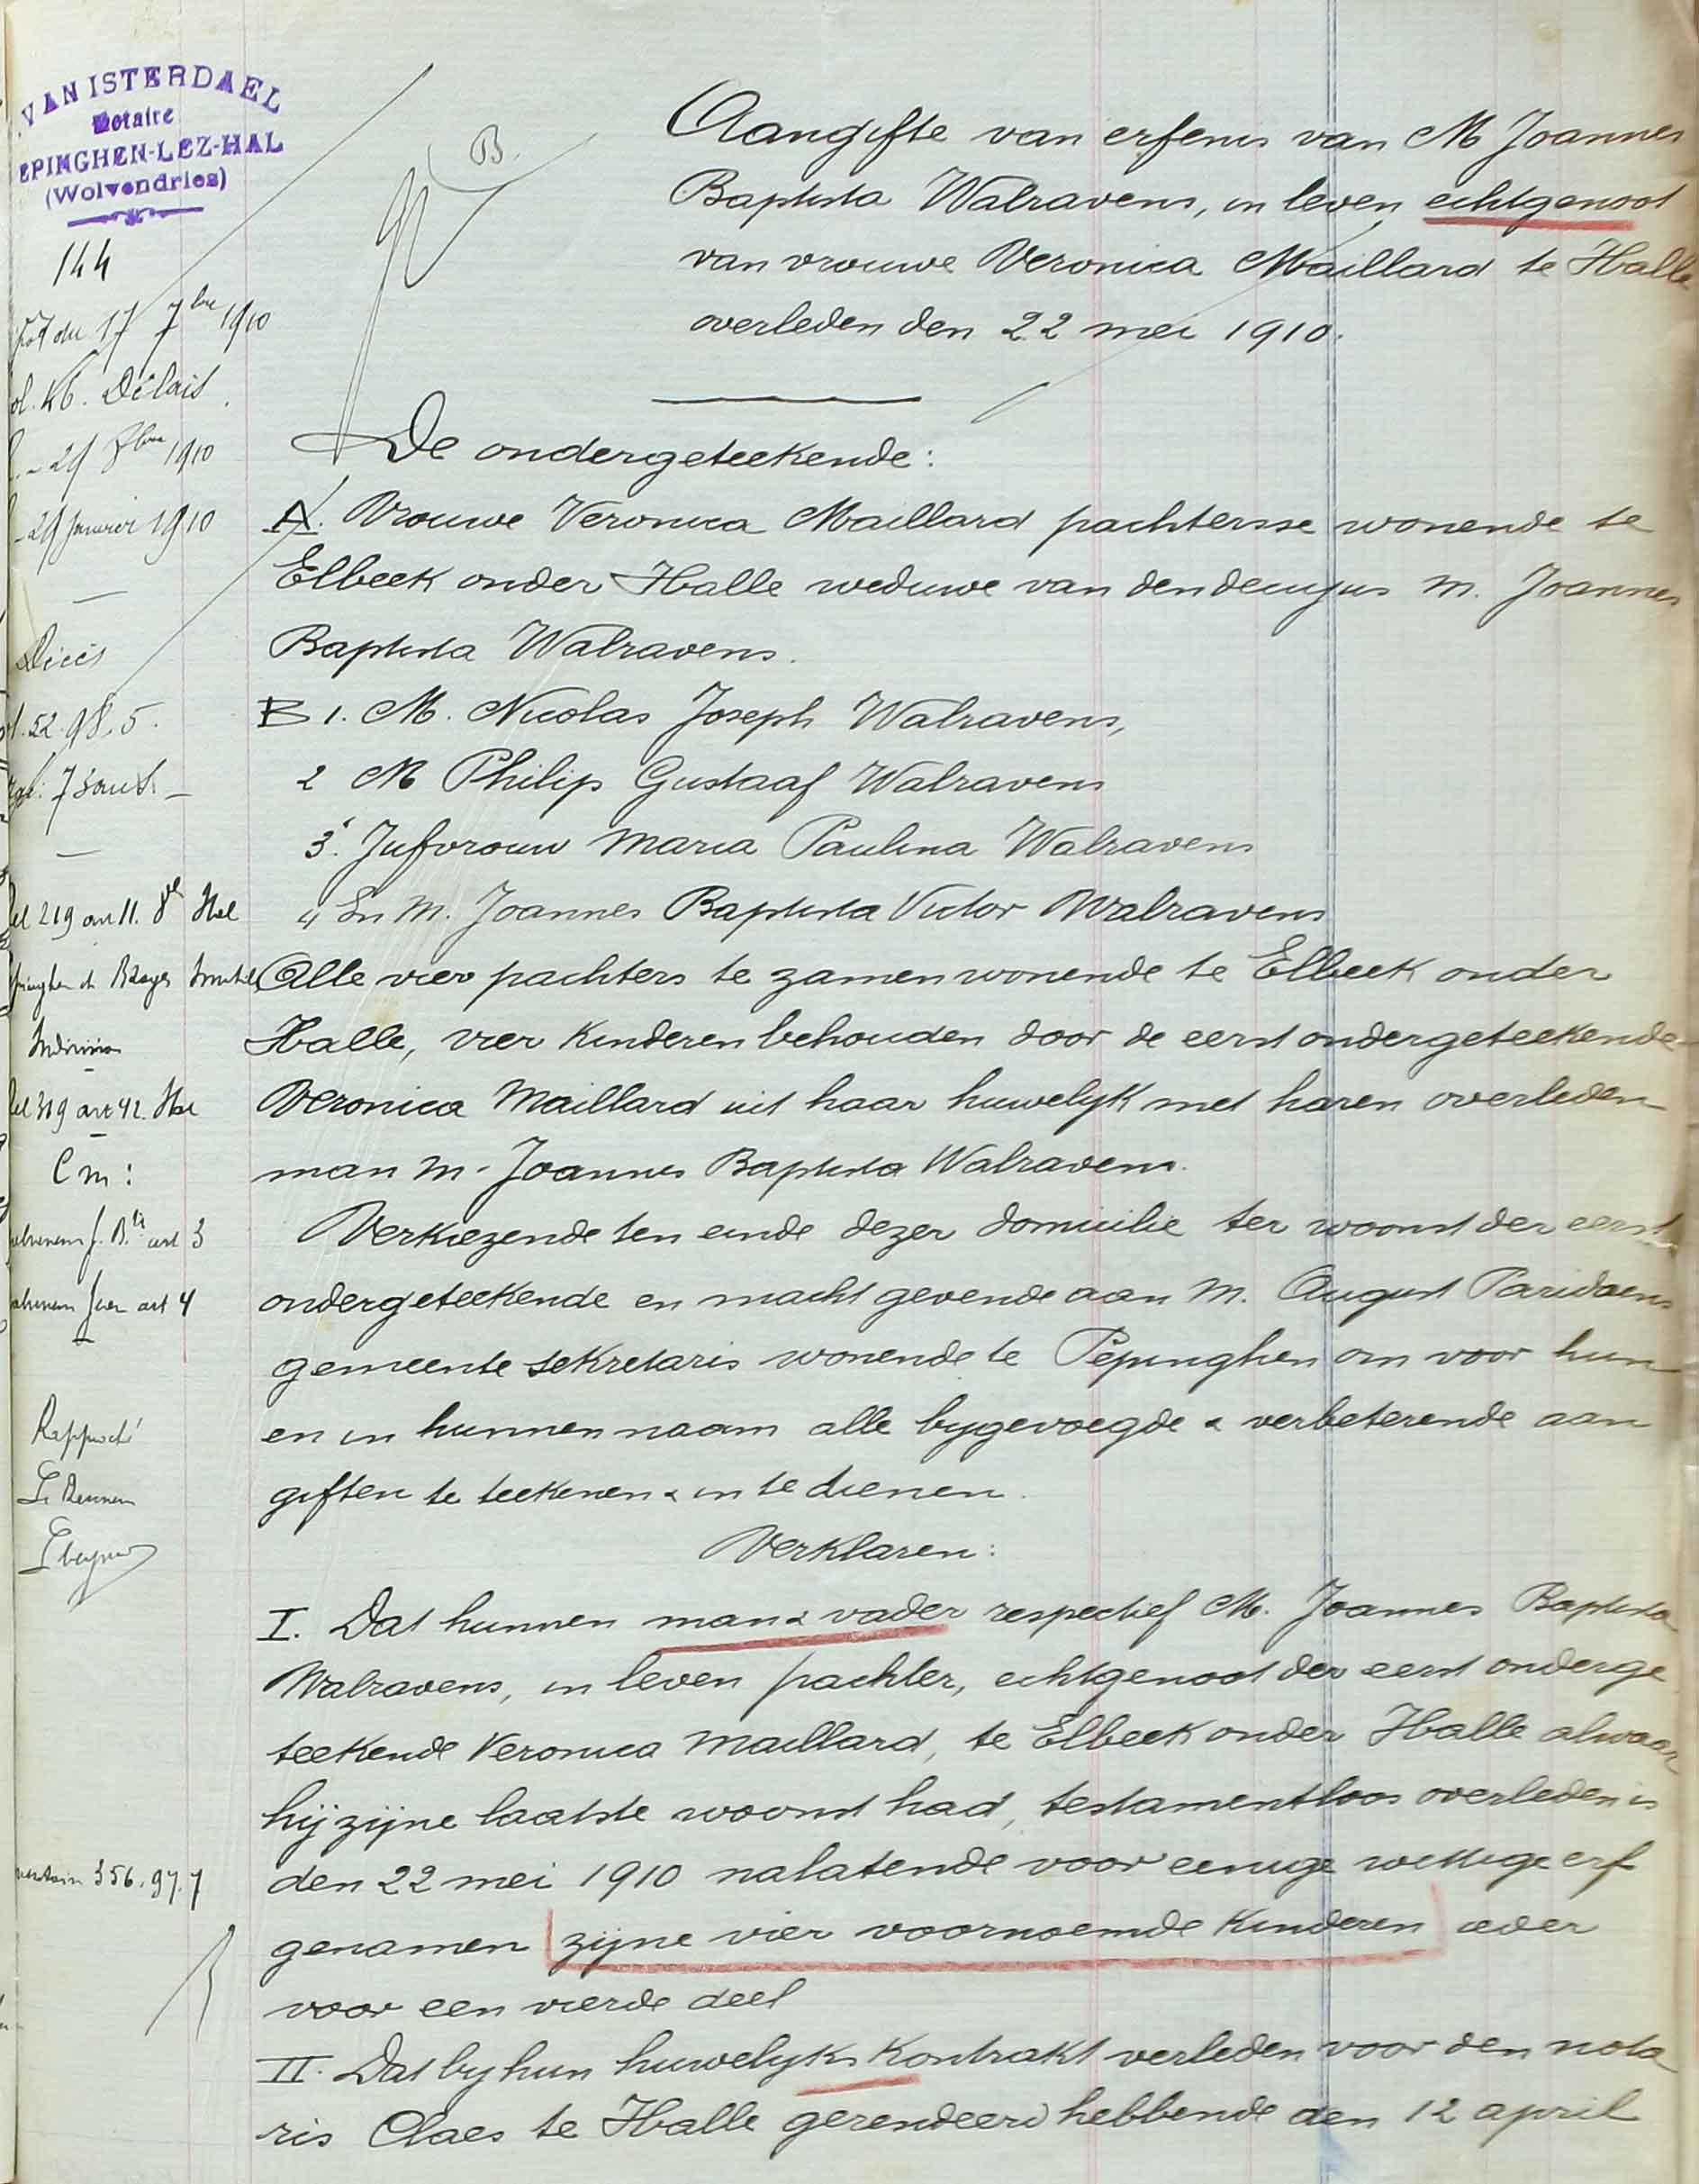 VAN ISTERDAEL
Notaire
EPINGHEN-LEZ-HAL
(Wolvendries)
144
du 17 7bre 1910
46. Délais
29 8bre 1910
29 Janvier 1910
Décès
52. 98. 5.
219 art 11. Hal
Indivision
319 art 42. Hal
Cm:
art 3
art 4
Rapporté
356. 97. 7
B.
Aangifte van erfenis van M Joannes
Baptista Walravens, in leven echtgenoot
van vrouwe Veronica Maillard te Halle
overleden den 22 mei 1910.
De ondergeteekende:
A. Vrouwe Veronica Maillard pachtersse wonende te
Elbeek onder Halle weduwe van den deugus M. Joannes
Baptista Walravens.
B 1. M. Nicolas Joseph Walravens,
2 M Philip Gustaaf Walravens
3. Jufvrouw Maria Paulina Walravens
4 En M. Joannes Baptista Victor Walravens
Alle vier pachters te zamen wonende te Elbeek onder
Halle, vier kinderen behouden door de eerst ondergeteekende
Veronica Maillard uit haar huwelyk met haren overleden
man M. Joannes Baptista Walravens.
Verkiezende ten einde dezer domicilie ter woonst der eerst
ondergeteekende en macht gevende aan M. August Paridaens
gemeente sekretaris wonende te Pepinghen om voor hun
en in hunnen naam alle bygevoegde & verbeterende aan
giften te teekenen & in te dienen.
Verklaren:
I. Dat hunnen man & vader respectief M. Joannes Baptista
Walravens, in leven pachter, echtgenoot der eerst onderge
teekende Veronica Maillard, te Elbeek onder Halle alwaar
hij zijne laatste woonst had, testamentloos overleden is
den 22 mei 1910 nalatende voor eenige wettige erf
genamen zijne vier voornoemde kinderen ieder
voor een vierde deel
II. Dat by hun huwelyks kontrakt verleden voor den nota
ris Claes te Halle gerendeerd hebbende den 12 april